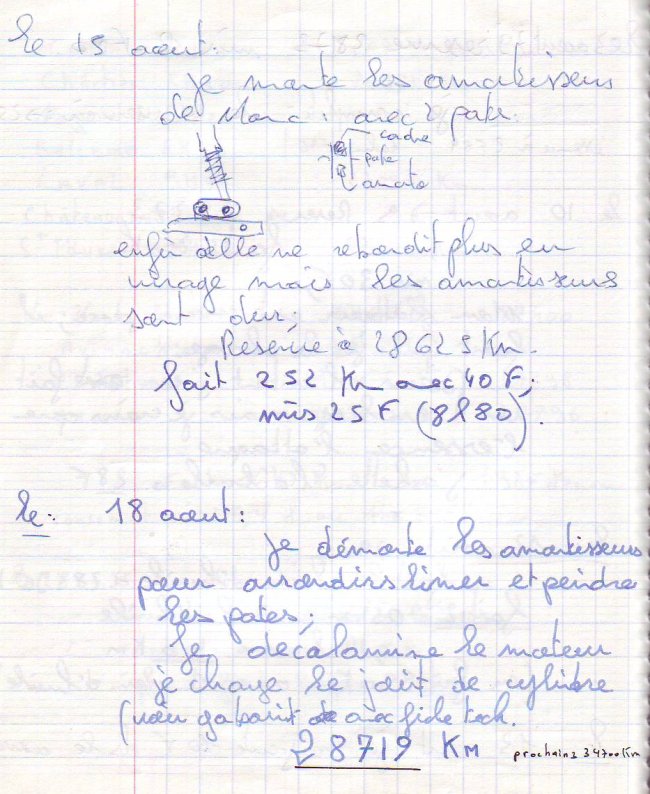 le 15 aout:
je monte les amortisseurs
de Marc: avec 2 pate.
cadre
pate
amorto
enfin elle ne rebondit plus en
virage mais les amortisseurs
sont dur;
Reserve à 28625 Km.
fait 252 Km avec 40 F;
mis 25 F (8l80).
le: 18 aout:
je démonte les amortisseurs
pour arrondir limer et peindre
les pates;
Je decalamine le moteur
je change le joint de cylindre
(voir gabarit avec fiche tech.
28719 KM
prochain 34700 Km